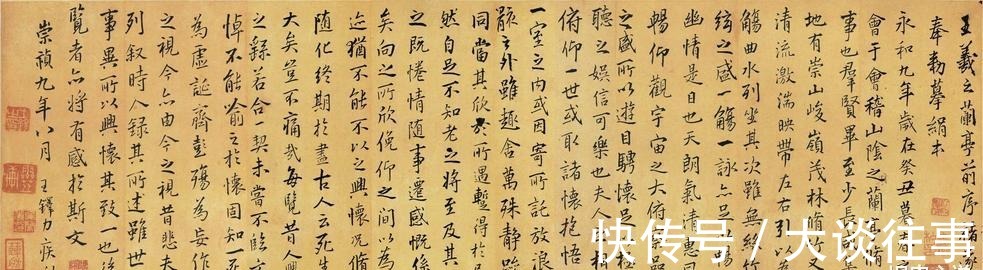 王羲之蘭亭前序
奉勅摹絹本
永和九年歲在癸丑暮春
會于會稽山陰之蘭亭脩
事也羣賢畢至少長
地有崇山峻嶺茂林脩竹
清流激湍映帶左右引以
觴曲水列坐其次雖無絲竹
絃之盛一觴一詠亦足以
幽情是日也天朗氣清惠
暢仰觀宇宙之大俯
之盛所以遊目騁懷足
聽之娛信可樂也夫人
俯仰一世或取諸懷抱悟
一室之內或因寄所託放浪
骸之外雖趣舍萬殊靜
同當其欣於所遇暫得於
然自足不知老之將至及其
之既惓情隨事遷感慨係
矣向之所欣俛仰之間以為
迹猶不能不以之興懷況脩
隨化終期於盡古人云死生
大矣豈不痛哉每覽昔人興
之錄若合一契未嘗不臨文
悼不能喻之於懷固知
為虛誕齊彭殤為妄作
之視今亦由今之視昔悲夫
列敘時人錄其所述雖世
事異所以興懷其致一也後
覽者亦將有感於斯文
崇禎九年八月 王鐸力疾
快传号／大谈往事